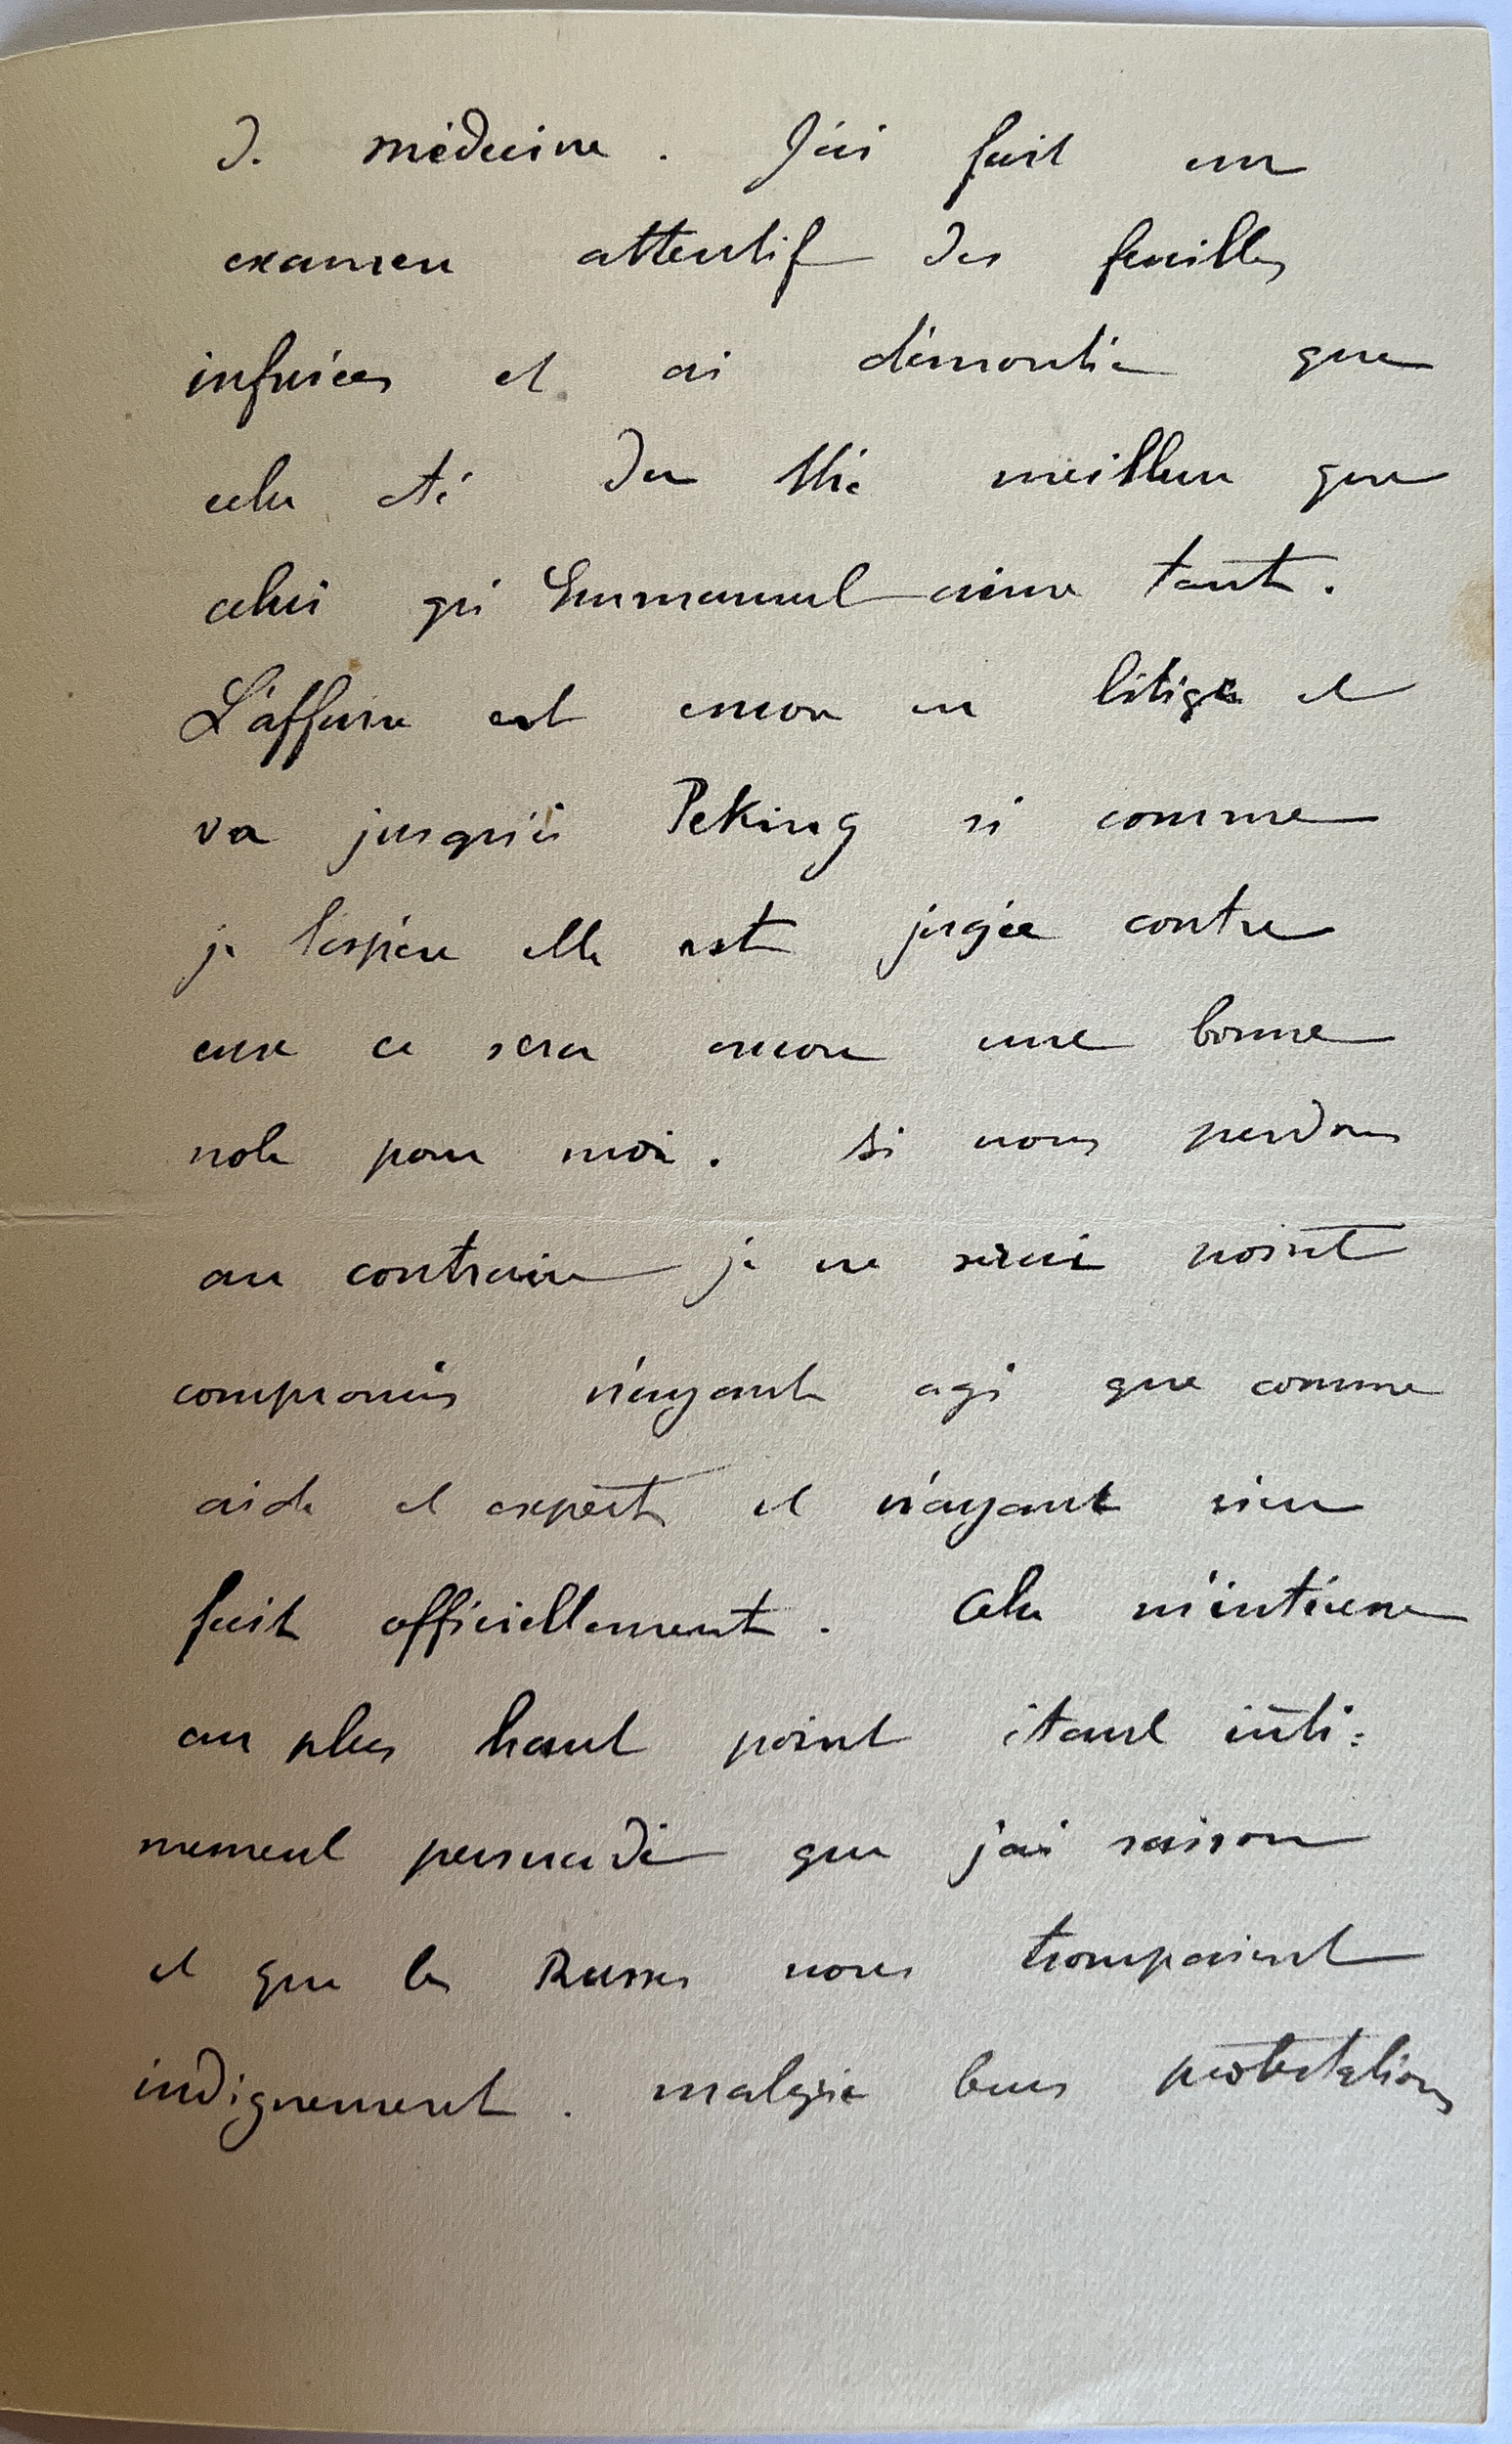 de médecine. J'ai fait un
examen attentif des feuilles
infusées et ai démontré que
cela été du thé meilleur que
celui qu'Emmanuel aime tant.
L'affaire est encore en litige et
va jusqu'à Peking si comme
je l'espère elle est jugée contre
eux ce sera encore une bonne
note pour moi. Si nous perdons
au contraire je ne serai point
compromis n'ayant agi que comme
aide et expert et n'ayant rien
fait officiellement. Cela m'intéresse
au plus haut point étant inti=
mement persuadé que j'ai raison
et que les Russes nous trompaient
indignement. malgré leurs protestations